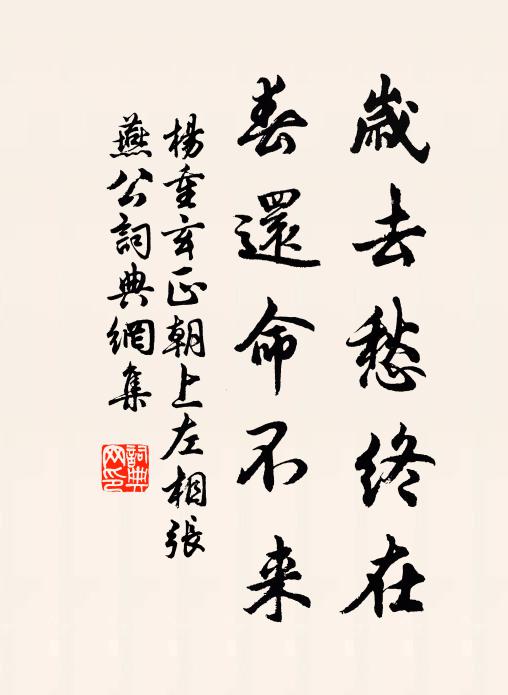 歲去愁終在
春還命不来
楊重玄正朝上左相張
燕公詞典網集
詞典网印